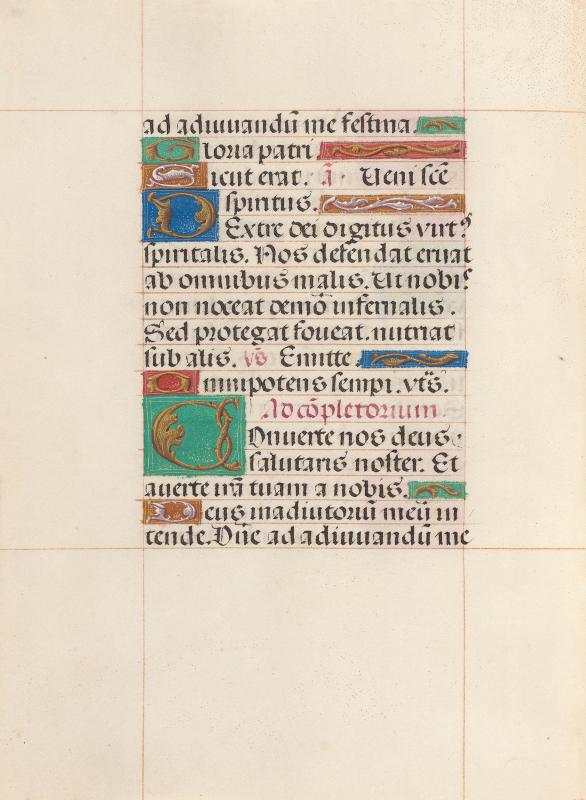 ad adiuuandū me festina.
Gloria patri
Sicut erat. ā. Ueni scē
spiritus.
Dextre dei digitus virtꝰ
spiritalis. Nos defendat eruat
ab omnibus malis. Ut nobiꝰ
non noceat demō infernalis.
Sed protegat foueat. nutriat
sub alis. vs̄ Emitte.
Omnipotens sempi. vts̄.
Ad cōpletorium.
Conuerte nos deus
salutaris noster. Et
auerte irā tuam a nobis.
Deus in adiutoriū meū in
tende. Dn̄e ad adiuuandū me